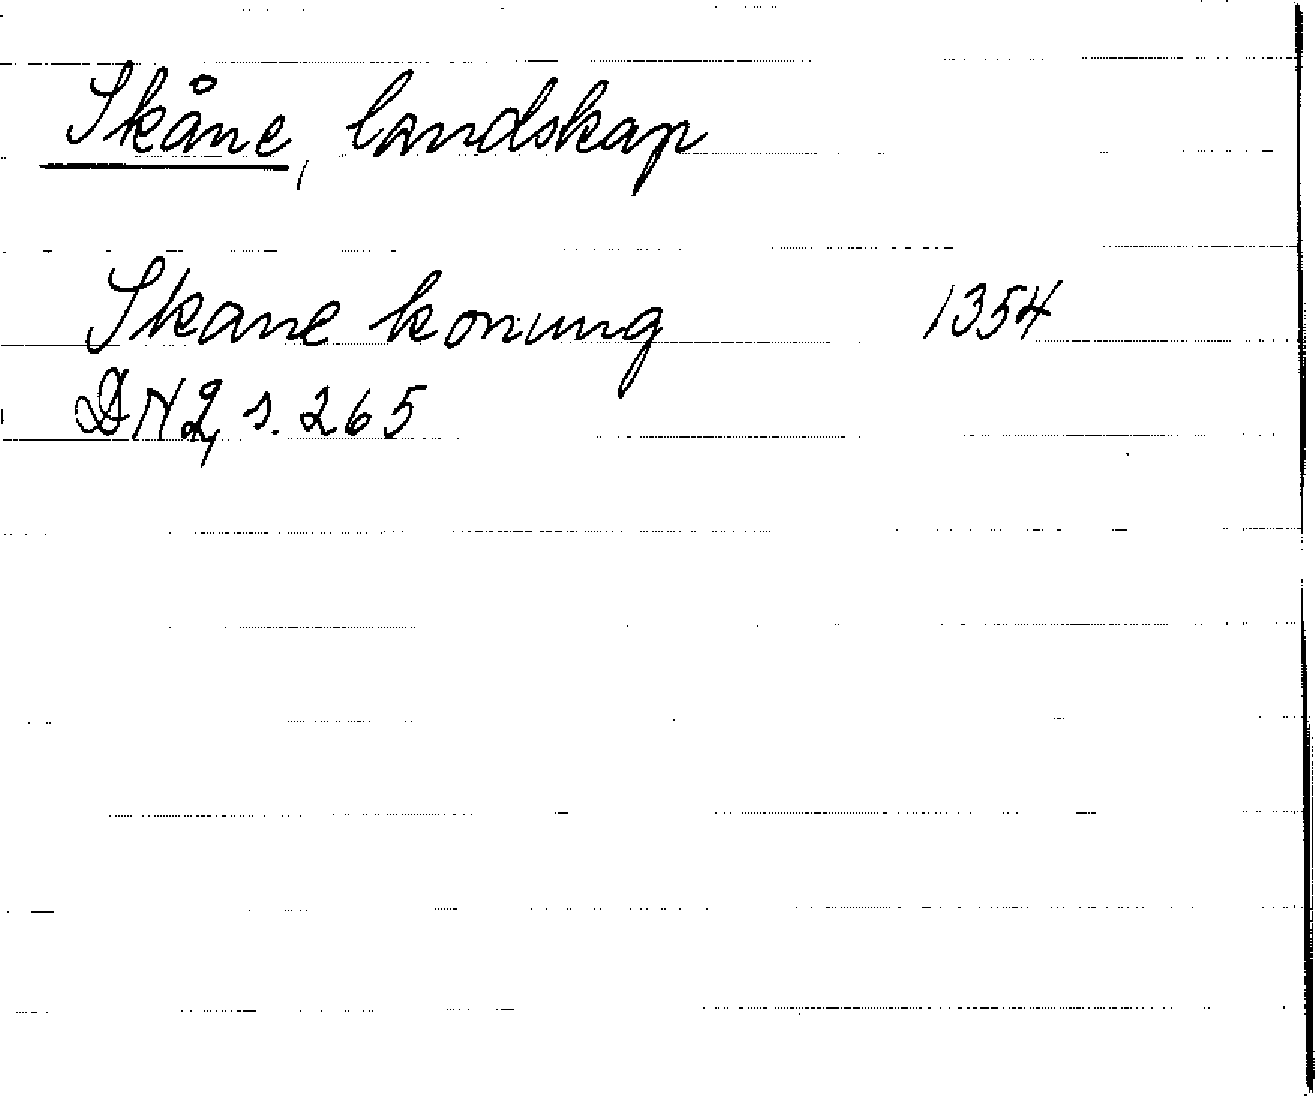 Skåne, landskap
Skane konung 1354
DN 2, s. 265